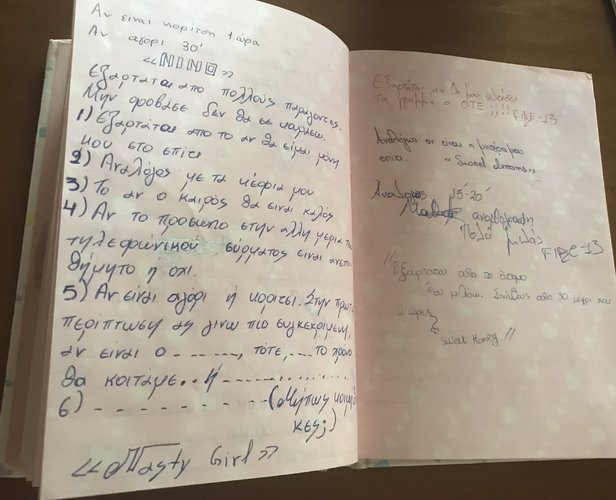 Αν είναι κορίτσι 1 ώρα
Αν αγόρι 30'
«NINO»
Εξαρτάται απο πολλούς παράγοντες.
Μην φοβάσε δεν θα σε κουράσω.
1) Εξαρτάται απο το αν θα είμαι μόνη
μου στο σπίτι
2) Αναλόγος με τα κέφια μου
3) Το αν ο καιρός θα ειναι καλός
4) Αν το προσωπο στην άλλη μερια το
τηλεφωνικού σύρματος ειναι αντιπα
θήμητο η οχι.
5) Αν είναι αγόρι ή κοριτσι. Στην πρωτη
περιπτωση ας γινω πιο συγκεκριμενη,
αν ειναι ο ------, τότε, ---- το χρονο
θα κοιτάμε.. ή ..........
6) - - - - - - - - (Μήπως
κες;)
«Nasty Girl»
Εξαρτάται αν θα μου κόψει
τη γραμμή ο ΟΤΕ ;;!! FBE-13
Αναλόγως αν είναι η μητέρα μου
σπιτι "Sweet dreams"
Αναλόγως 15'-20'
ανορθογραφη
Πολύ μιλάς
FBE-13
"Εξαρταται απο το άτομο
που μιλάω. Συνήθως απο 30' μέχρι και
2 ώρες
Sweet Honey"